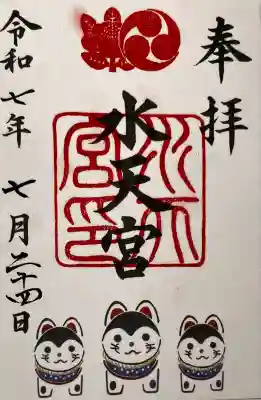 奉拝
水天宮
水天宮印
令和七年 七月二十四日